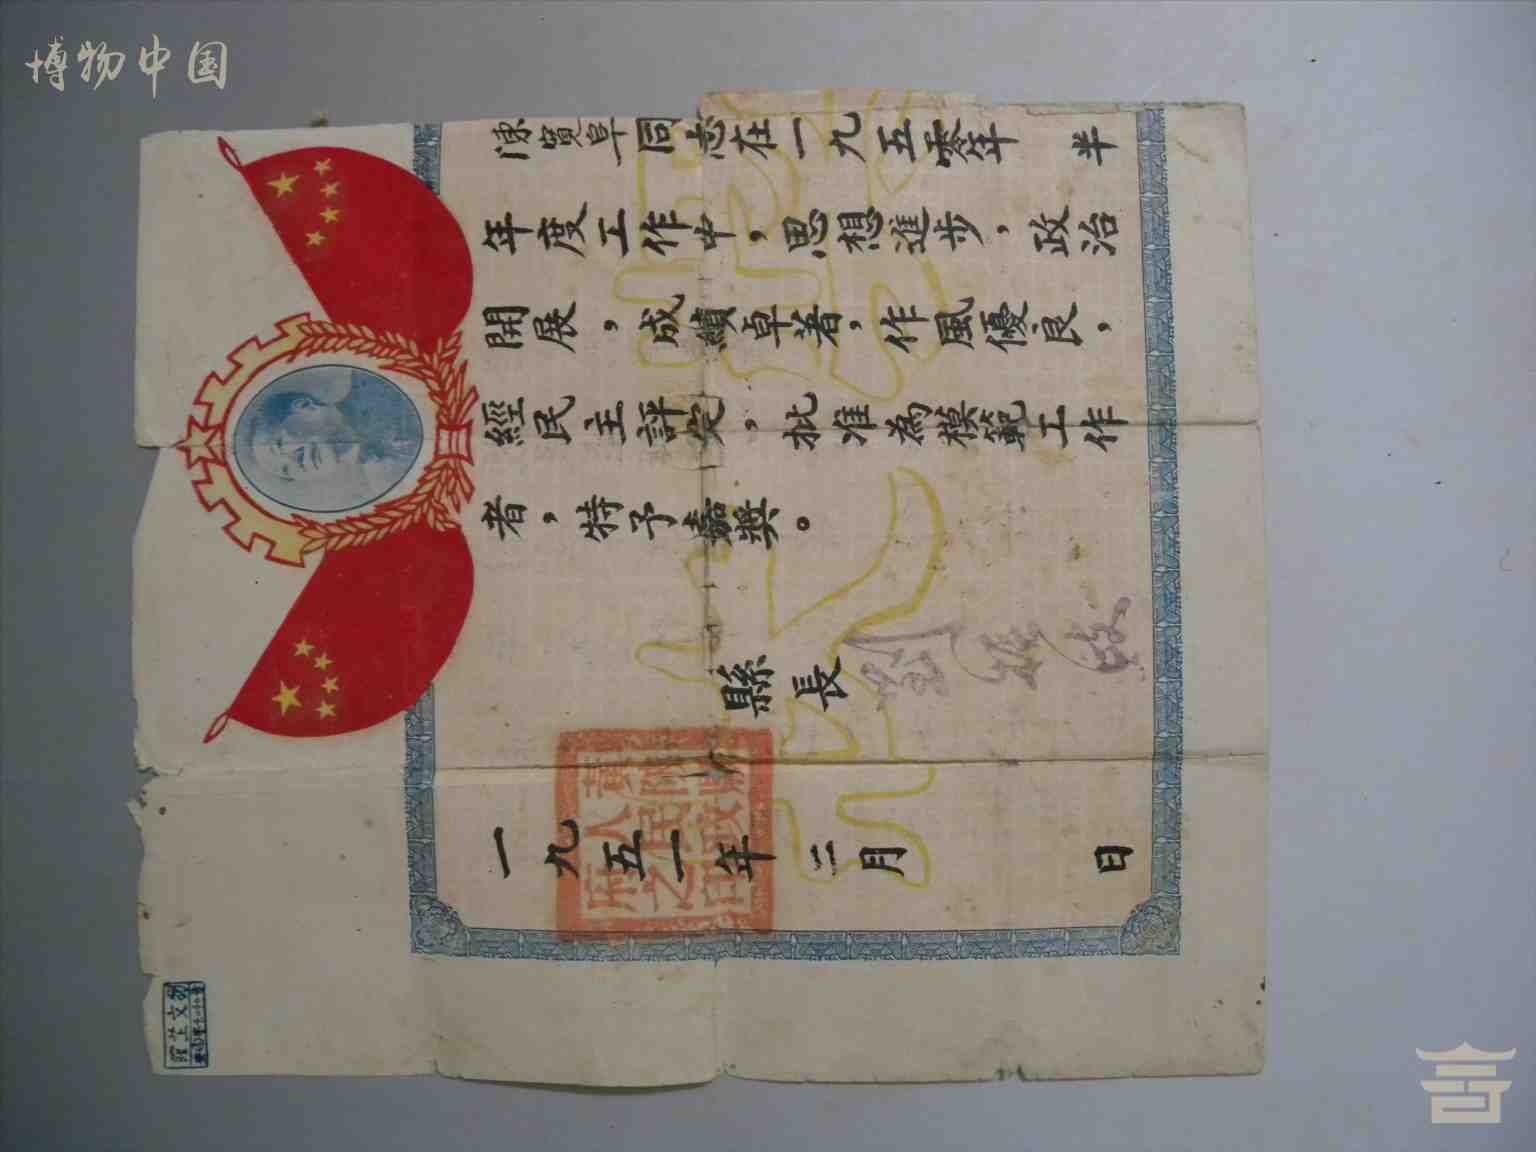 博物中国
陳寶阜同志在一九五零年 半
年度工作中，思想進步，政治
開展，成績卓著，作風優良，
經民主評定，批准為模範工作
者，特予嘉獎。
縣長
一九五一年三月 日
人民政
府之印